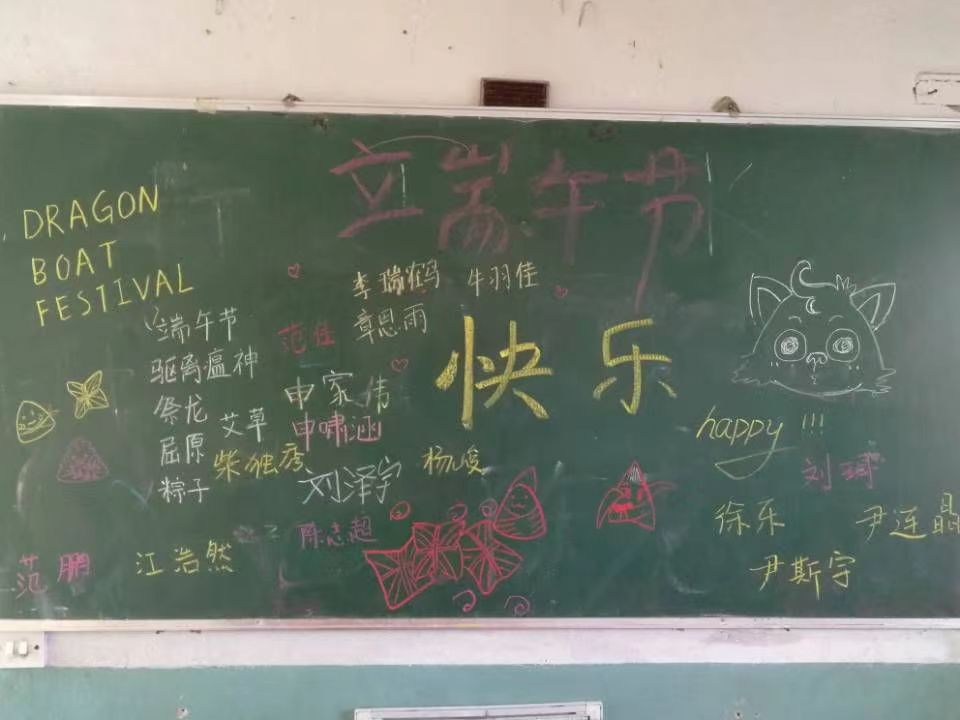 端午节
DRAGON
BOAT
FESTIVAL
李瑞鹤 牛羽佳
章恩雨
端午节
驱离瘟神
祭龙
屈原 艾草
粽子
范佳
快乐
申家伟
申啸涵
柴独秀
刘泽宇
杨峻
happy !!!
刘珂
徐乐
尹连晶
尹斯宇
陈志超
范鹏
江浩然